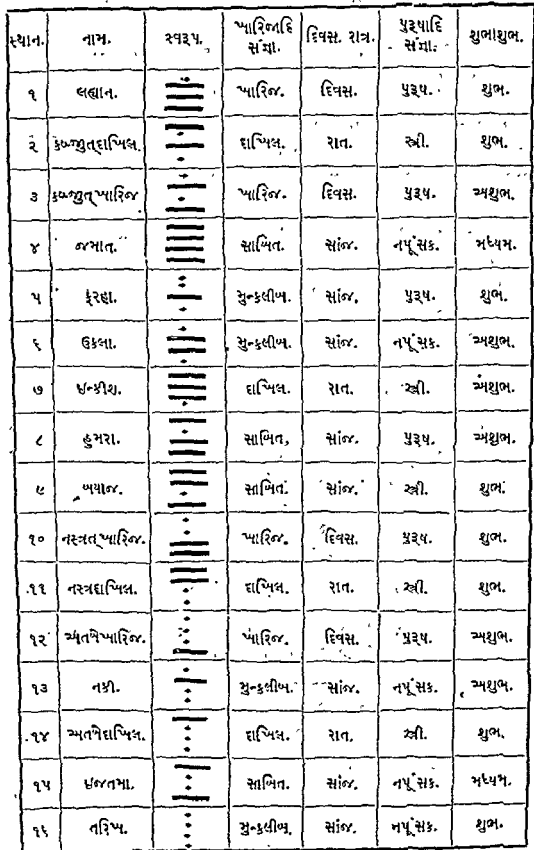 સ્થાન. નામ. સ્વરૂપ. ખારિજાદિ સંજ્ઞા. દિવસ. રાત્ર. પુરૂષાદિ સંજ્ઞા. શુભાશુભ.
૧ લહ્યાન. ખારિજ. દિવસ. પુરૂષ. શુભ.
૨ કબ્જુત્દાખિલ. દાખિલ. રાત. સ્ત્રી. શુભ.
૩ કબ્જુત્ખારિજ ખારિજ. દિવસ. પુરૂષ. અશુભ.
૪ જમાત. સાબિત. સાંજ. નપૂંસક. મધ્યમ.
૫ ફરહા. મુન્કલીબ. સાંજ. પુરૂષ. શુભ.
૬ ઉકલા. મુન્કલીબ. સાંજ. નપૂંસક. અશુભ.
૭ ઇન્કીશ. દાખિલ. રાત. સ્ત્રી. અશુભ.
૮ હુમરા. સાબિત, સાંજ. પુરૂષ. અશુભ.
૯ બયાજ. સાબિત. સાંજ. સ્ત્રી. શુભ.
૧૦ નસ્ત્રત્ખારિજ. ખારિજ. દિવસ. પુરૂષ. શુભ.
૧૧ નસ્ત્રદાખિલ. દાખિલ. રાત. સ્ત્રી. શુભ.
૧૨ અતબેખારિજ. ખારિજ. દિવસ. પુરૂષ. અશુભ.
૧૩ નકી. મુન્કલીબ. સાંજ. નપૂંસક. અશુભ.
૧૪ અતબેદાખિલ. દાખિલ. રાત. સ્ત્રી. શુભ.
૧૫ ઇજતમા. સાબિત. સાંજ. નપૂંસક. મધ્યમ.
૧૬ તરિખ. મુન્કલીબ. સાંજ. નપૂંસક. શુભ.